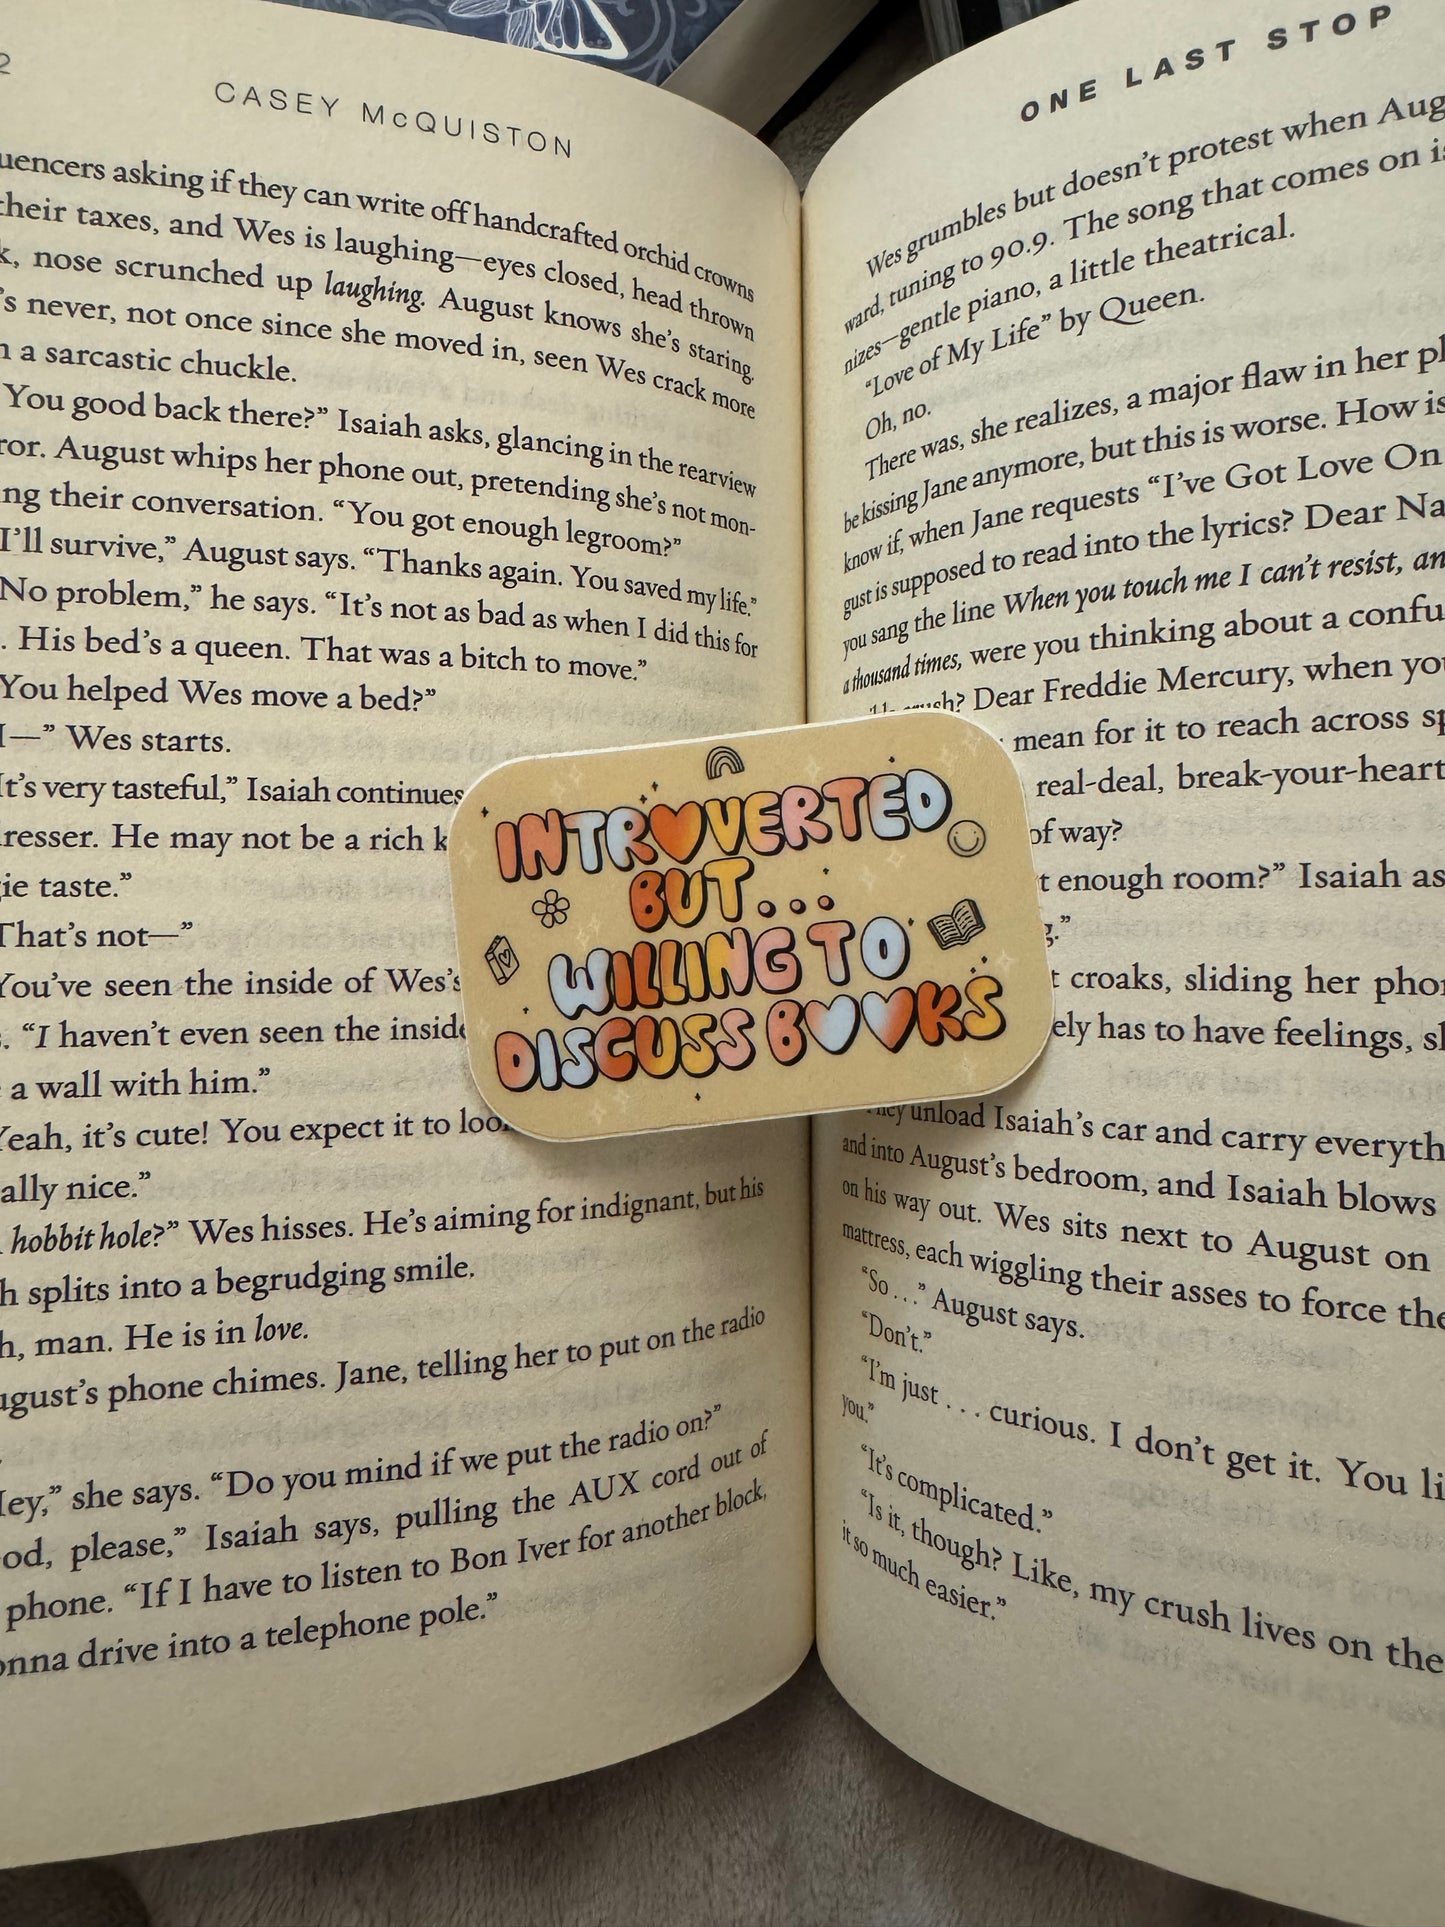 2
CASEY McQUISTON
uencers asking if they can write off handcrafted orchid crowns
their taxes, and Wes is laughing—eyes closed, head thrown
k, nose scrunched up laughing. August knows she's staring.
's never, not once since she moved in, seen Wes crack more
n a sarcastic chuckle.
You good back there?” Isaiah asks, glancing in the rearview
ror. August whips her phone out, pretending she's not mon-
ng their conversation. “You got enough legroom?”
I'll survive,” August says. “Thanks again. You saved my life.”
No problem,” he says. “It's not as bad as when I did this for
. His bed's a queen. That was a bitch to move.”
You helped Wes move a bed?”
I—” Wes starts.
It's very tasteful,” Isaiah continues
resser. He may not be a rich k
gie taste.”
That's not—”
You've seen the inside of Wes's
. “I haven't even seen the inside
a wall with him.”
Yeah, it's cute! You expect it to loo
ally nice.”
hobbit hole?” Wes hisses. He's aiming for indignant, but his
h splits into a begrudging smile.
h, man. He is in love.
ugust's phone chimes. Jane, telling her to put on the radio
Hey,” she says. “Do you mind if we put the radio on?”
od, please,” Isaiah says, pulling the AUX cord out of
phone. “If I have to listen to Bon Iver for another block,
onna drive into a telephone pole.”
ONE LAST STOP
Wes grumbles but doesn't protest when Aug
ward, tuning to 90.9. The song that comes on is
nizes—gentle piano, a little theatrical.
“Love of My Life” by Queen.
Oh, no.
There was, she realizes, a major flaw in her pl
be kissing Jane anymore, but this is worse. How is
know if, when Jane requests “I've Got Love On
gust is supposed to read into the lyrics? Dear Na
you sang the line When you touch me I can't resist, an
a thousand times, were you thinking about a confu
crush? Dear Freddie Mercury, when you
mean for it to reach across sp
real-deal, break-your-heart
of way?
t enough room?” Isaiah as
g.”
t croaks, sliding her phon
ely has to have feelings, sh
They unload Isaiah's car and carry everyth
and into August's bedroom, and Isaiah blows
on his way out. Wes sits next to August on
mattress, each wiggling their asses to force the
“So . . .” August says.
“Don't.”
“I'm just . . . curious. I don't get it. You li
you.”
“It's complicated.”
“Is it, though? Like, my crush lives on the
it so much easier.”
INTROVERTED
BUT...
WILLING TO
DISCUSS BOOKS